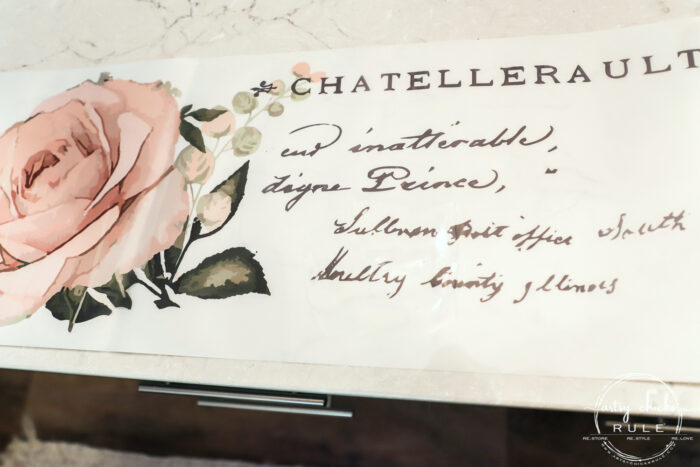 CHATELLERAULT
eur inattérable,
digne Prince, "
Sullivan Post office South
Moultry County Illinois
RULE
RE.STORE RE.STYLE RE.LOVE